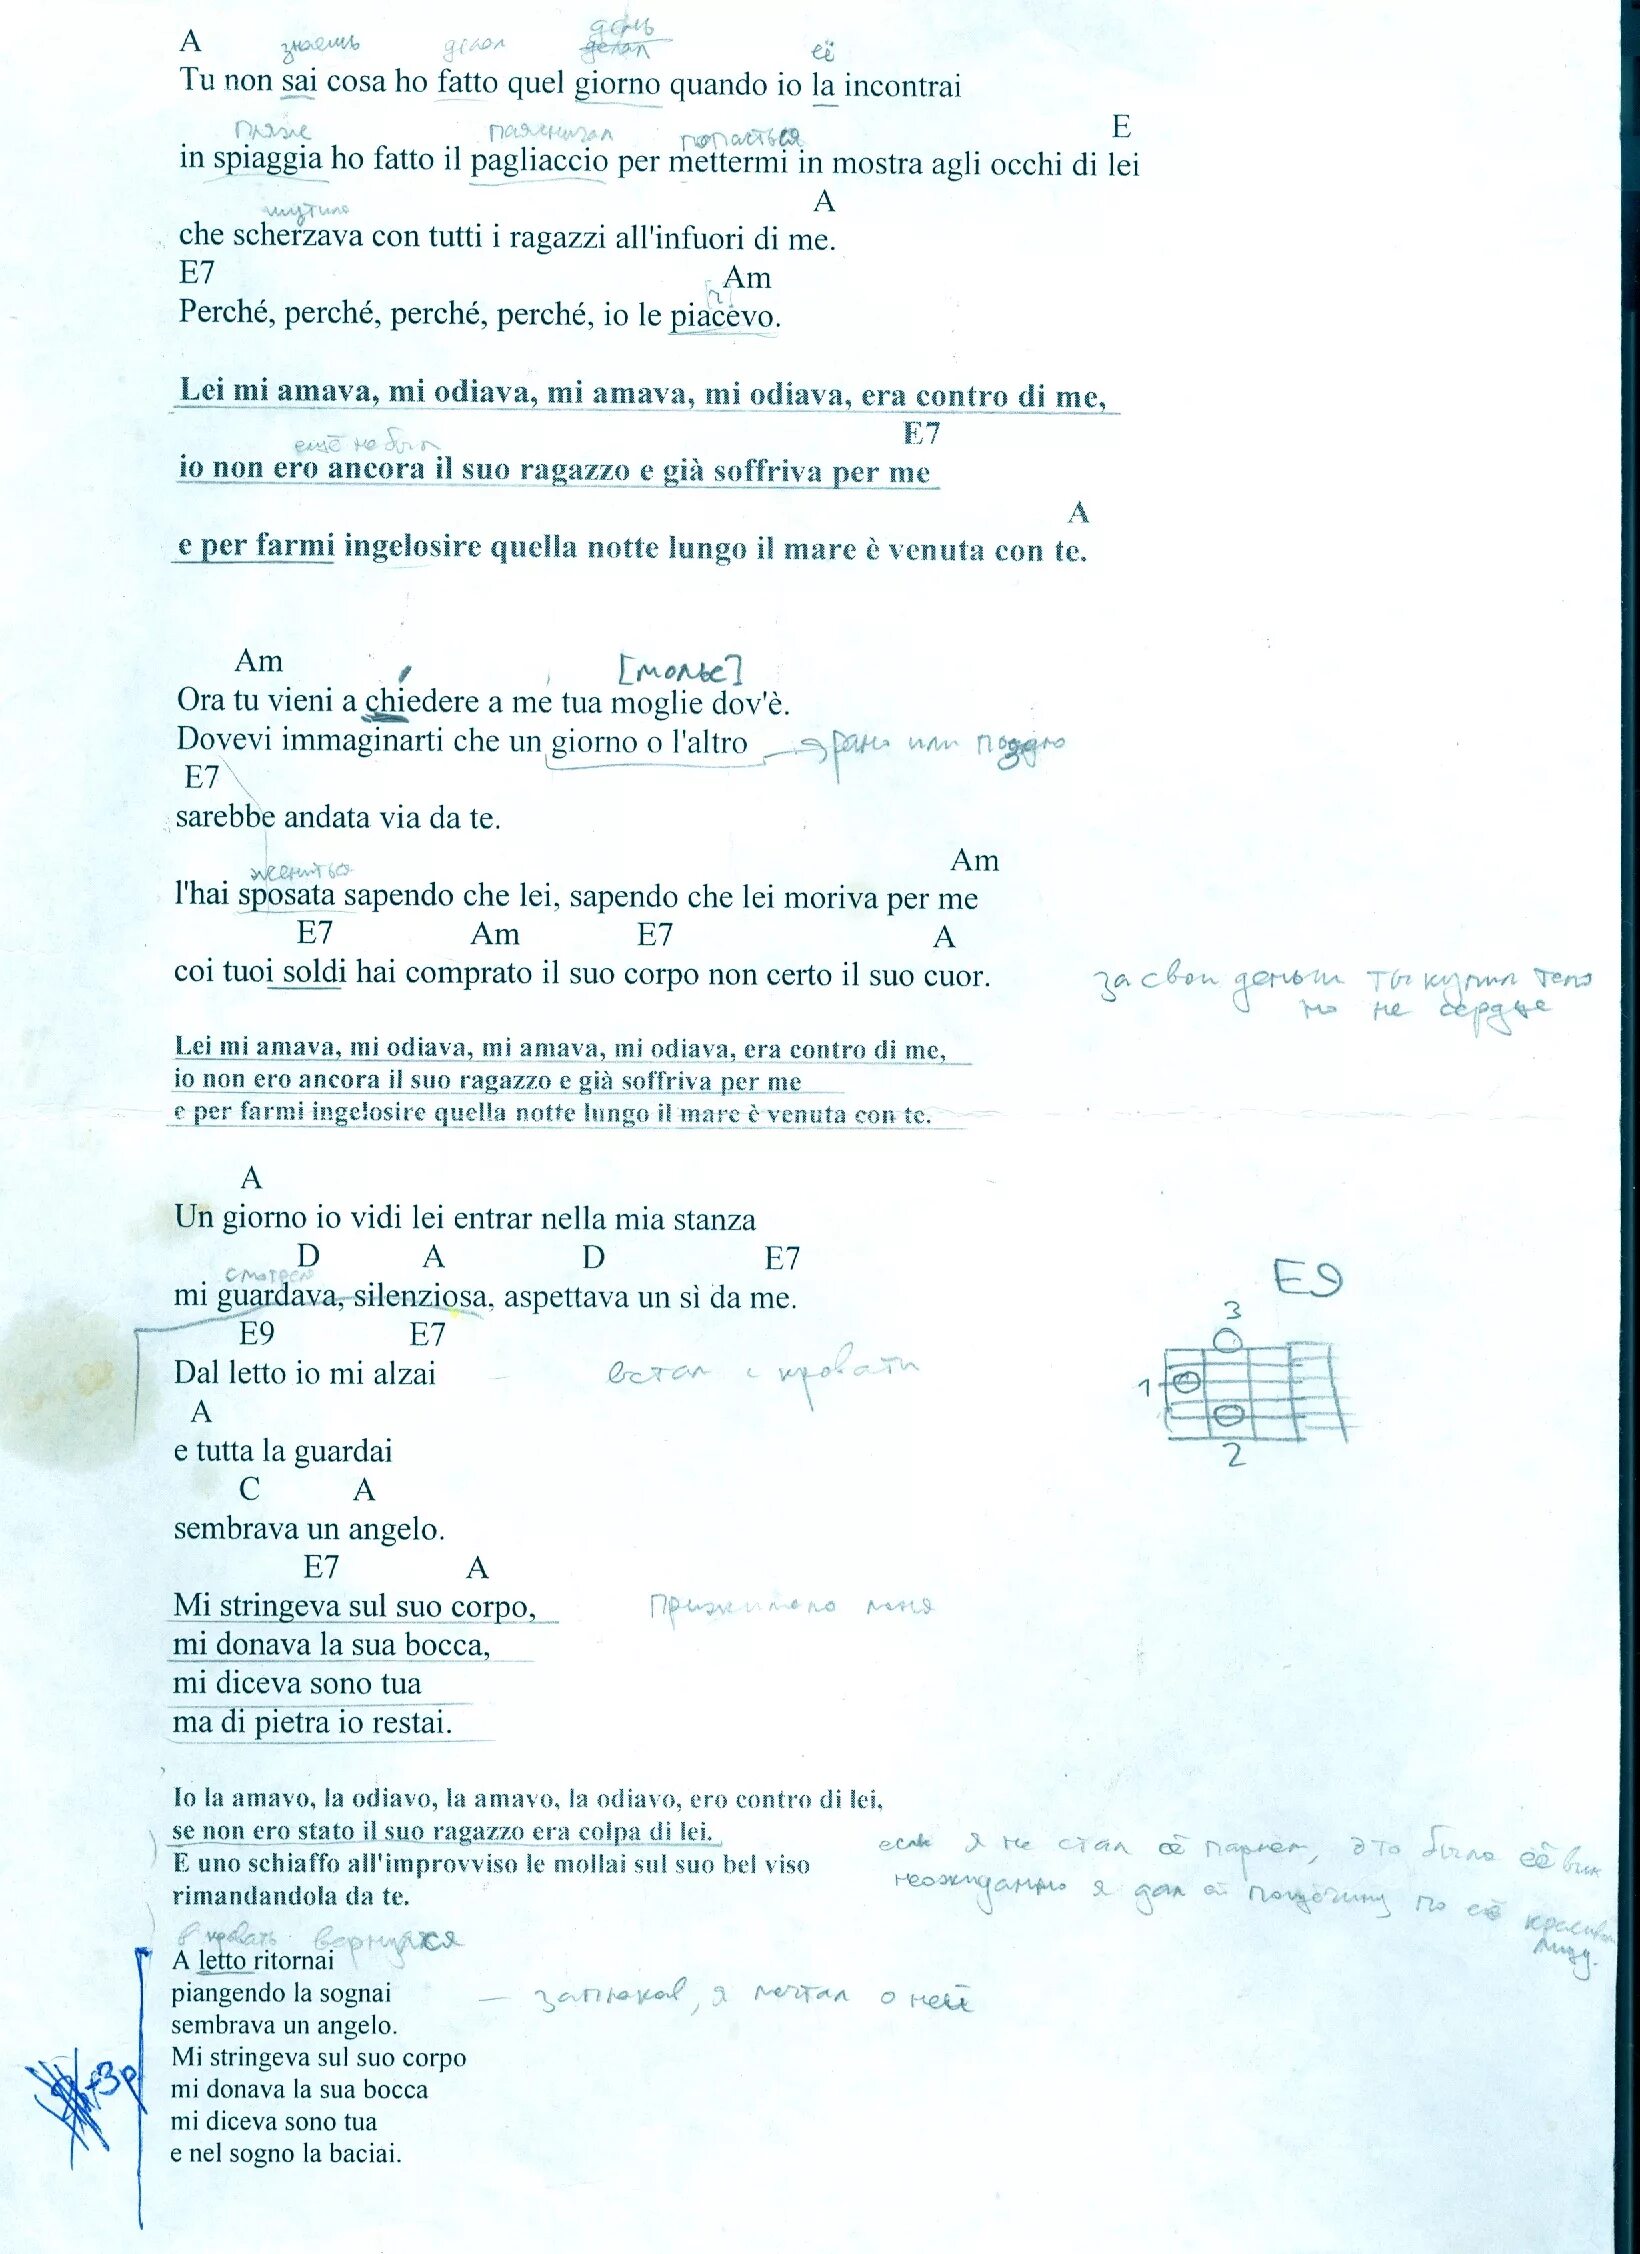 день
A знаешь делал делал её
Tu non sai cosa ho fatto quel giorno quando io la incontrai
пляже паясничал попасться E
in spiaggia ho fatto il pagliaccio per mettermi in mostra agli occhi di lei
шутило A
che scherzava con tutti i ragazzi all'infuori di me.
E7 Am
Perché, perché, perché, perché, io le piacevo.
Lei mi amava, mi odiava, mi amava, mi odiava, era contro di me,
ещё не был E7
io non ero ancora il suo ragazzo e già soffriva per me
A
e per farmi ingelosire quella notte lungo il mare è venuta con te.
Am [молье]
Ora tu vieni a chiedere a me tua moglie dov'è.
Dovevi immaginarti che un giorno o l'altro рано или поздно
E7
sarebbe andata via da te.
жениться Am
l'hai sposata sapendo che lei, sapendo che lei moriva per me
E7 Am E7 A
coi tuoi soldi hai comprato il suo corpo non certo il suo cuor. за свои деньги ты купил тело
но не сердце
Lei mi amava, mi odiava, mi amava, mi odiava, era contro di me,
io non ero ancora il suo ragazzo e già soffriva per me
e per farmi ingelosire quella notte lungo il mare è venuta con te.
A
Un giorno io vidi lei entrar nella mia stanza
D A D E7
смотрела
mi guardava, silenziosa, aspettava un sì da me.
E9
3
1
2
E9 E7
Dal letto io mi alzai встал с кровати
A
e tutta la guardai
C A
sembrava un angelo.
E7 A
Mi stringeva sul suo corpo, прижимала меня
mi donava la sua bocca,
mi diceva sono tua
ma di pietra io restai.
Io la amavo, la odiavo, la amavo, la odiavo, ero contro di lei,
se non ero stato il suo ragazzo era colpa di lei. если я не стал её парнем, это было её вин
E uno schiaffo all'improvviso le mollai sul suo bel viso неожиданно я дал ей пощёчину по её красивом
лицу.
rimandandola da te.
в кровать вернулся
A letto ritornai
piangendo la sognai — заплакав, я мечтал о ней
sembrava un angelo.
Mi stringeva sul suo corpo
+3р
mi donava la sua bocca
mi diceva sono tua
e nel sogno la baciai.